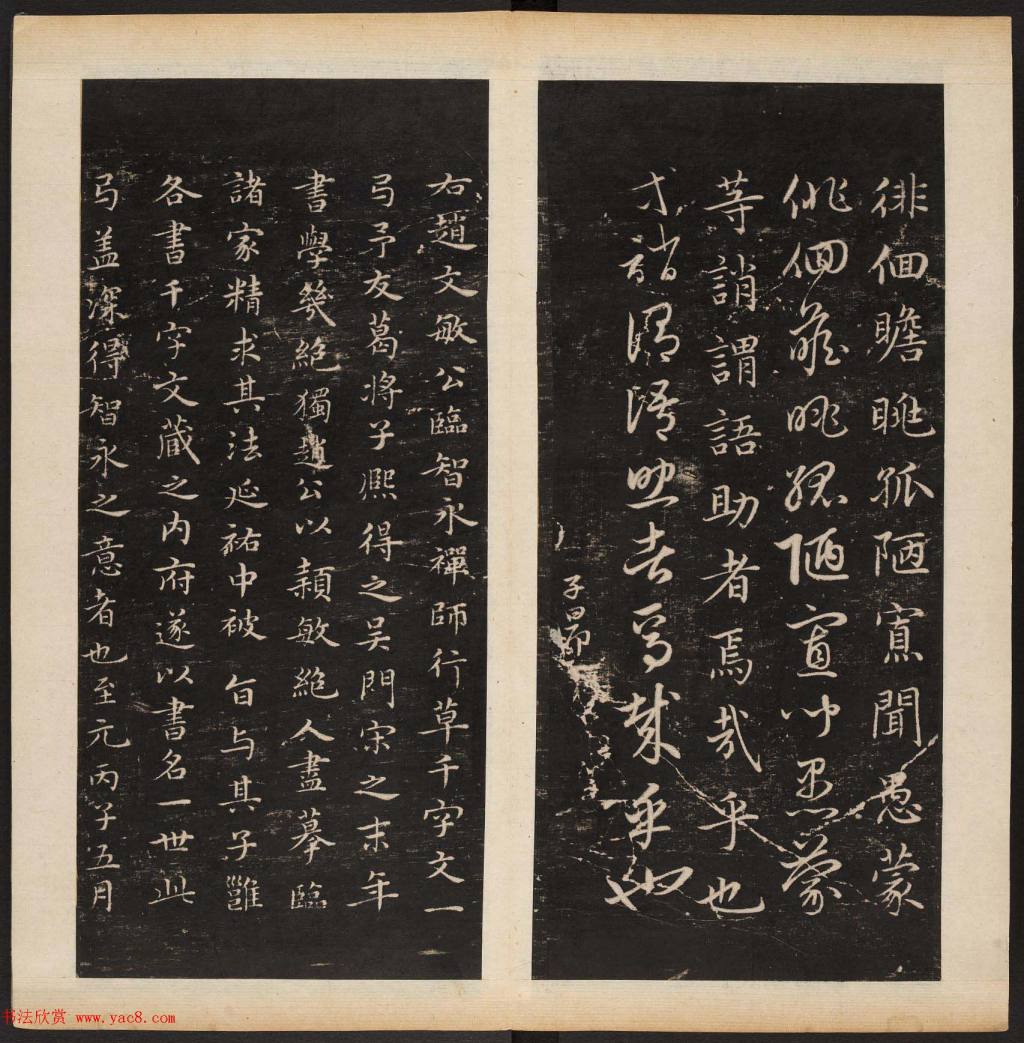 徘徊瞻眺孤陋寡聞愚蒙
徘徊瞻眺孤陋寡聞愚蒙
等誚謂語助者焉哉乎也
等誚謂語助者焉哉乎也
子昂
右趙文敏公臨智永禪師行草千字文一
弓予友葛將子熈得之吴門宋之末年
書學幾絶獨趙公以穎敏絶人盡摹臨
諸家精求其法延祐中被旨与其子雝
各書千字文藏之内府遂以書名一世此
弓盖深得智永之意者也至元丙子五月
书法欣赏 www.yac8.com